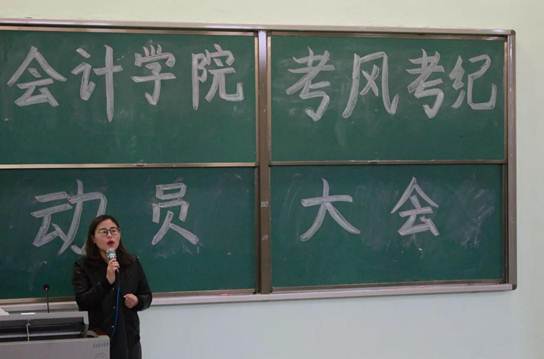 会计学院 考风考纪
动员 大会